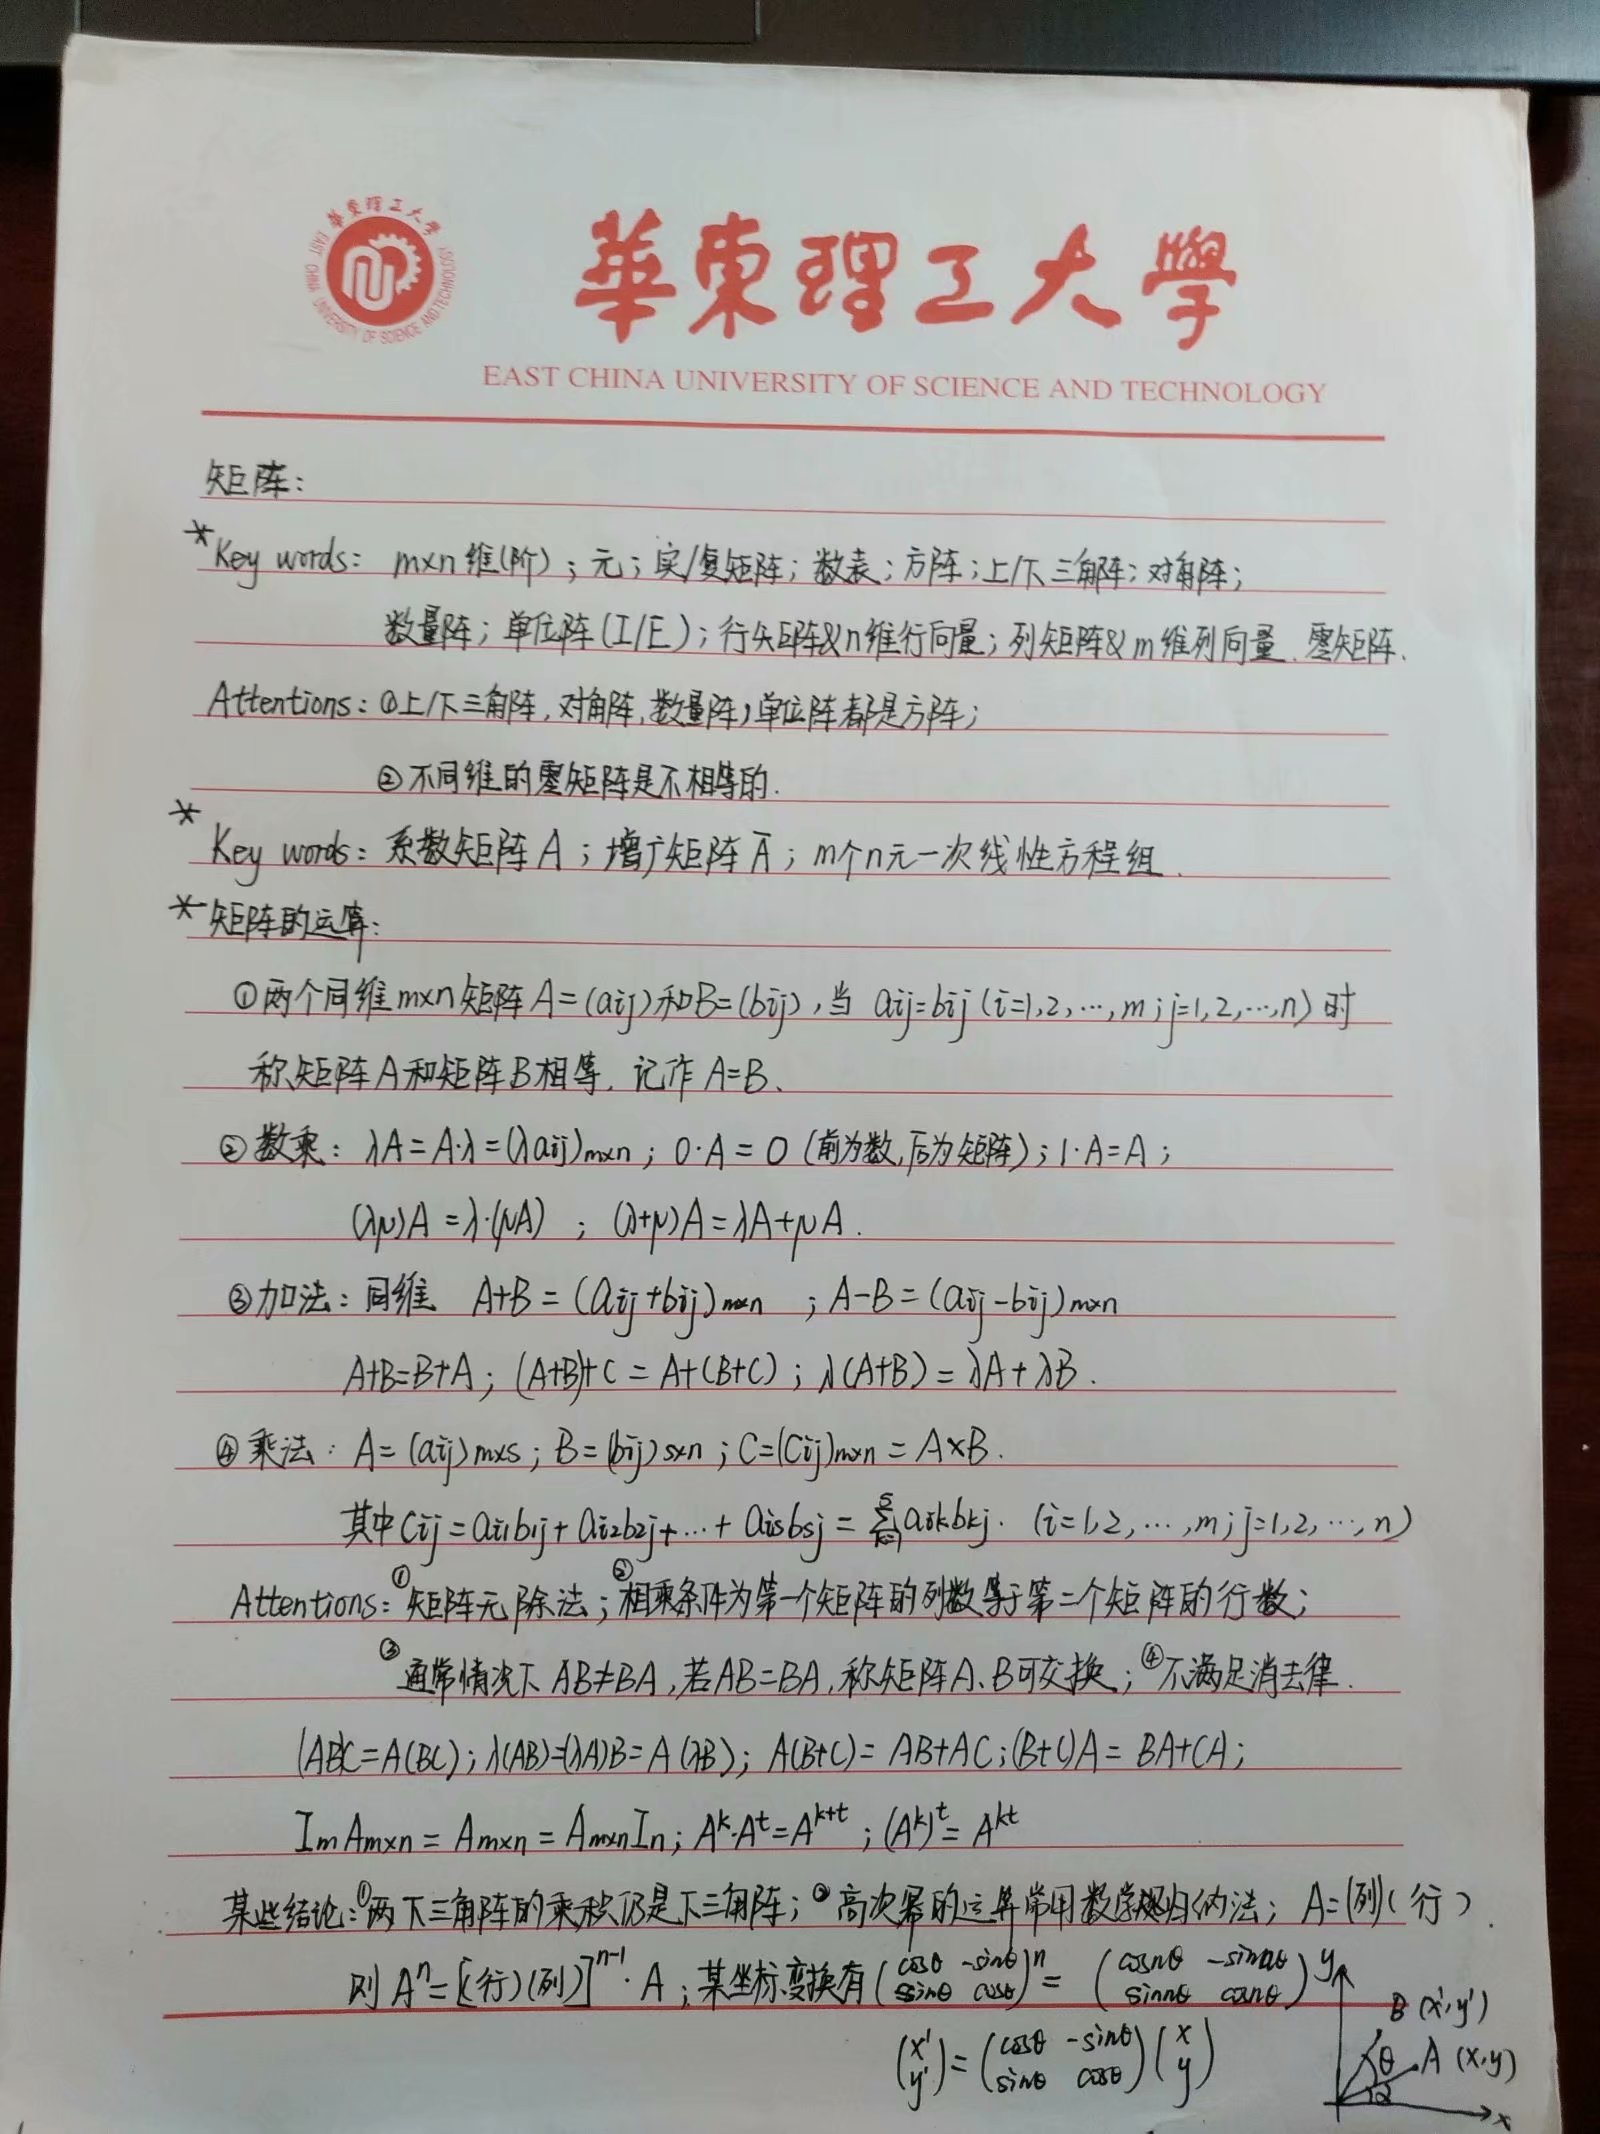 華東理工大學
EAST CHINA UNIVERSITY OF SCIENCE AND TECHNOLOGY
華東理工大學
EAST CHINA UNIVERSITY OF SCIENCE AND TECHNOLOGY
矩阵：
* Key words： m×n 维(阶)；元；实/复矩阵；数表；方阵；上/下三角阵；对角阵；
数量阵；单位阵(I/E)；行矩阵&n维行向量；列矩阵&m维列向量、零矩阵.
Attentions：①上/下三角阵，对角阵，数量阵，单位阵都是方阵；
②不同维的零矩阵是不相等的.
* Key words：系数矩阵A；增广矩阵Ā；m个n元一次线性方程组.
* 矩阵的运算：
①两个同维m×n矩阵A=(aij)和B=(bij)，当 aij=bij (i=1,2,…,m；j=1,2,…,n)时
称矩阵A和矩阵B相等，记作A=B、
②数乘：λA=A·λ=(λaij)m×n；0·A=0 (前为数，后为矩阵)；1·A=A；
(λμ)A=λ·(μA) ；(λ+μ)A=λA+μA.
③加法：同维 A+B=(aij+bij)m×n ；A-B=(aij-bij)m×n
A+B=B+A；(A+B)+C=A+(B+C)；λ(A+B)=λA+λB.
④乘法：A=(aij)m×s；B=(bij)s×n；C=(Cij)m×n=A×B.
其中Cij=ai1b1j+ai2b2j+…+aisbsj=∑(k=1→s)aikbkj. (i=1,2,…,m；j=1,2,…,n)
Attentions：①矩阵无除法；②相乘条件为第一个矩阵的列数等于第二个矩阵的行数；
③通常情况下AB≠BA，若AB=BA，称矩阵A、B可交换；④不满足消去律.
(AB)C=A(BC)；λ(AB)=(λA)B=A(λB)；A(B+C)=AB+AC；(B+C)A=BA+CA；
ImAm×n=Am×n=Am×nIn；A^k·A^t=A^(k+t)；(A^k)^t=A^kt
某些结论：①两下三角阵的乘积仍是下三角阵；②高次幂的运算常用数学归纳法；A=(列)(行).
则A^n=[(行)(列)]^(n-1)·A；某坐标变换有(cosθ -sinθ sinθ cosθ)^n=(cosnθ -sinnθ sinnθ cosnθ)
(x' y')=(cosθ -sinθ sinθ cosθ)(x y)
y
B (x',y')
θ A (x,y)
α
x